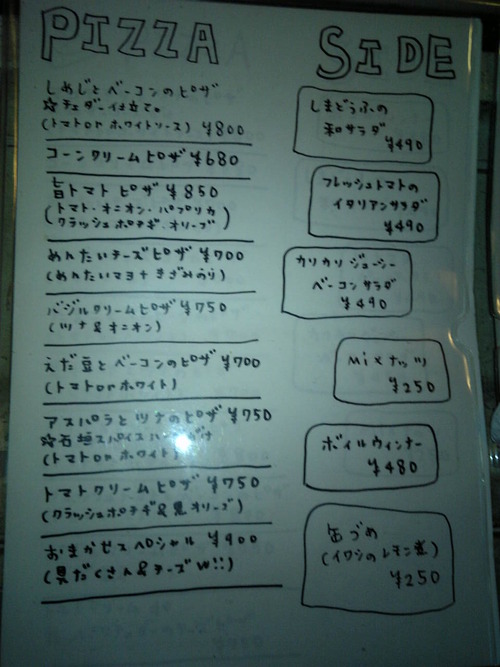 PIZZA
しめじとベーコンのピザ
☆チェダー仕立て。
(トマトorホワイトソース) ¥800
コーンクリームピザ ¥680
旨トマトピザ ¥850
(トマト・オニオン・パプリカ
クラッシュポテギ・オリーブ)
めんたいチーズピザ ¥700
(めんたいマヨ+きざみのり)
バジルクリームピザ ¥750
(ツナ&オニオン)
えだ豆とベーコンのピザ ¥700
(トマトorホワイト)
アスパラとツナのピザ ¥750
☆石垣スパイス
(トマトorホワイト)
トマトクリームピザ ¥750
(クラッシュポテギ&黒オリーブ)
おまかせスペシャル ¥900
(具だくさん&チーズW!!)
SIDE
しまどうふの
和サラダ
¥490
フレッシュトマトの
イタリアンサラダ
¥490
カリカリジューシー
ベーコンサラダ
¥490
Mixナッツ
¥250
ボイルウィンナー
¥480
缶づめ
(イワシのレモン煮)
¥250